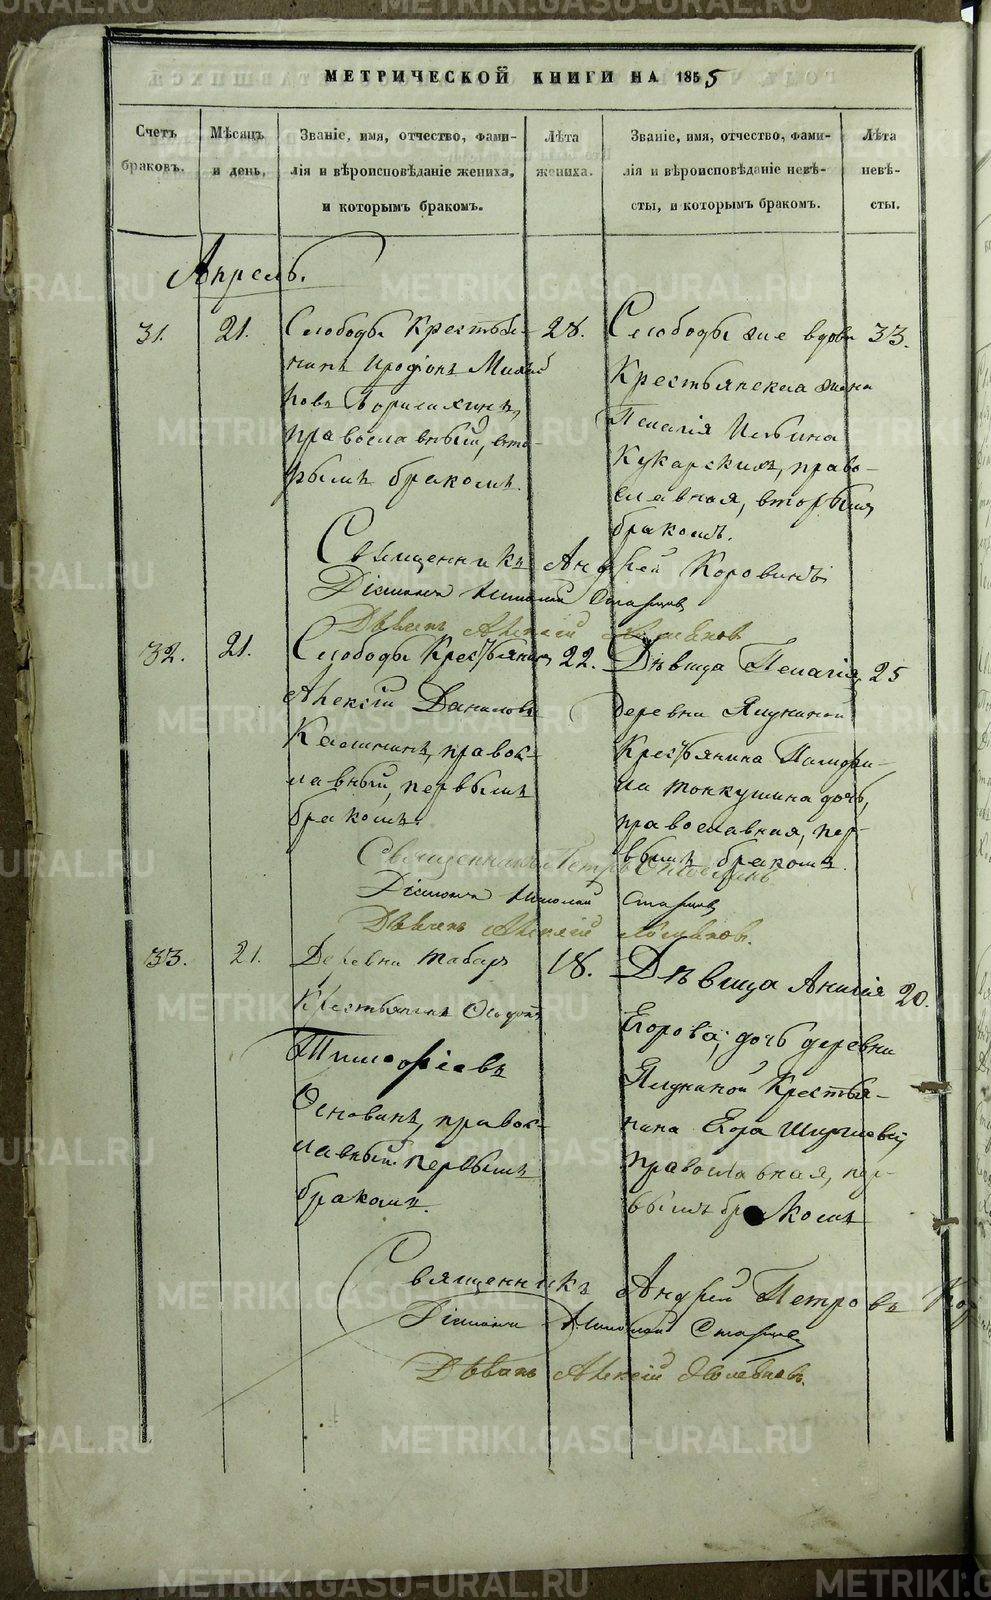 МЕТРИЧЕСКОЙ КНИГИ НА 1855
Счетъ браковъ.
Мѣсяцъ и день.
Званіе, имя, отчество, фами-
лія и вѣроисповѣданіе жениха,
и которымъ бракомъ.
Лѣта
жениха.
Званіе, имя, отчество, фами-
лія и вѣроисповѣданіе невѣ-
сты, и которымъ бракомъ.
Лѣта
невѣ-
сты.
Апрель.
31.
21.
Слободы Крестья-
нинъ Иродіонъ
православный, вто-
рымъ бракомъ.
28.
Слободы же вдова
Крестьянская жена
Пелагія Ильина
Кукарскихъ, право-
славная, вторымъ
бракомъ.
33.
Священникъ Андрей Коровинъ
Діаконъ Николай
Алексій
32.
21.
Слободы Крестьянинъ
Алексій Даниловъ
Калининъ, правос-
лавный, первымъ
бракомъ.
22.
Дѣвица Пелагія
деревни
Крестьянина Памфи-
ла дочь,
православная, пер-
вымъ бракомъ.
25
Священникъ Петръ
Діаконъ Николай
Алексій
33.
21.
Деревни Табаръ
Крестьянинъ
Тимофѣевъ
православ-
лавный первымъ
бракомъ.
18.
Дѣвица
Егорова, дочь деревни
Крестья-
нина Егора
православная, пер-
вымъ бракомъ
20.
Священникъ Андрей Петровъ Кор
Діаконъ Николай
Алексій
METRIKI.GASO-URAL.RU